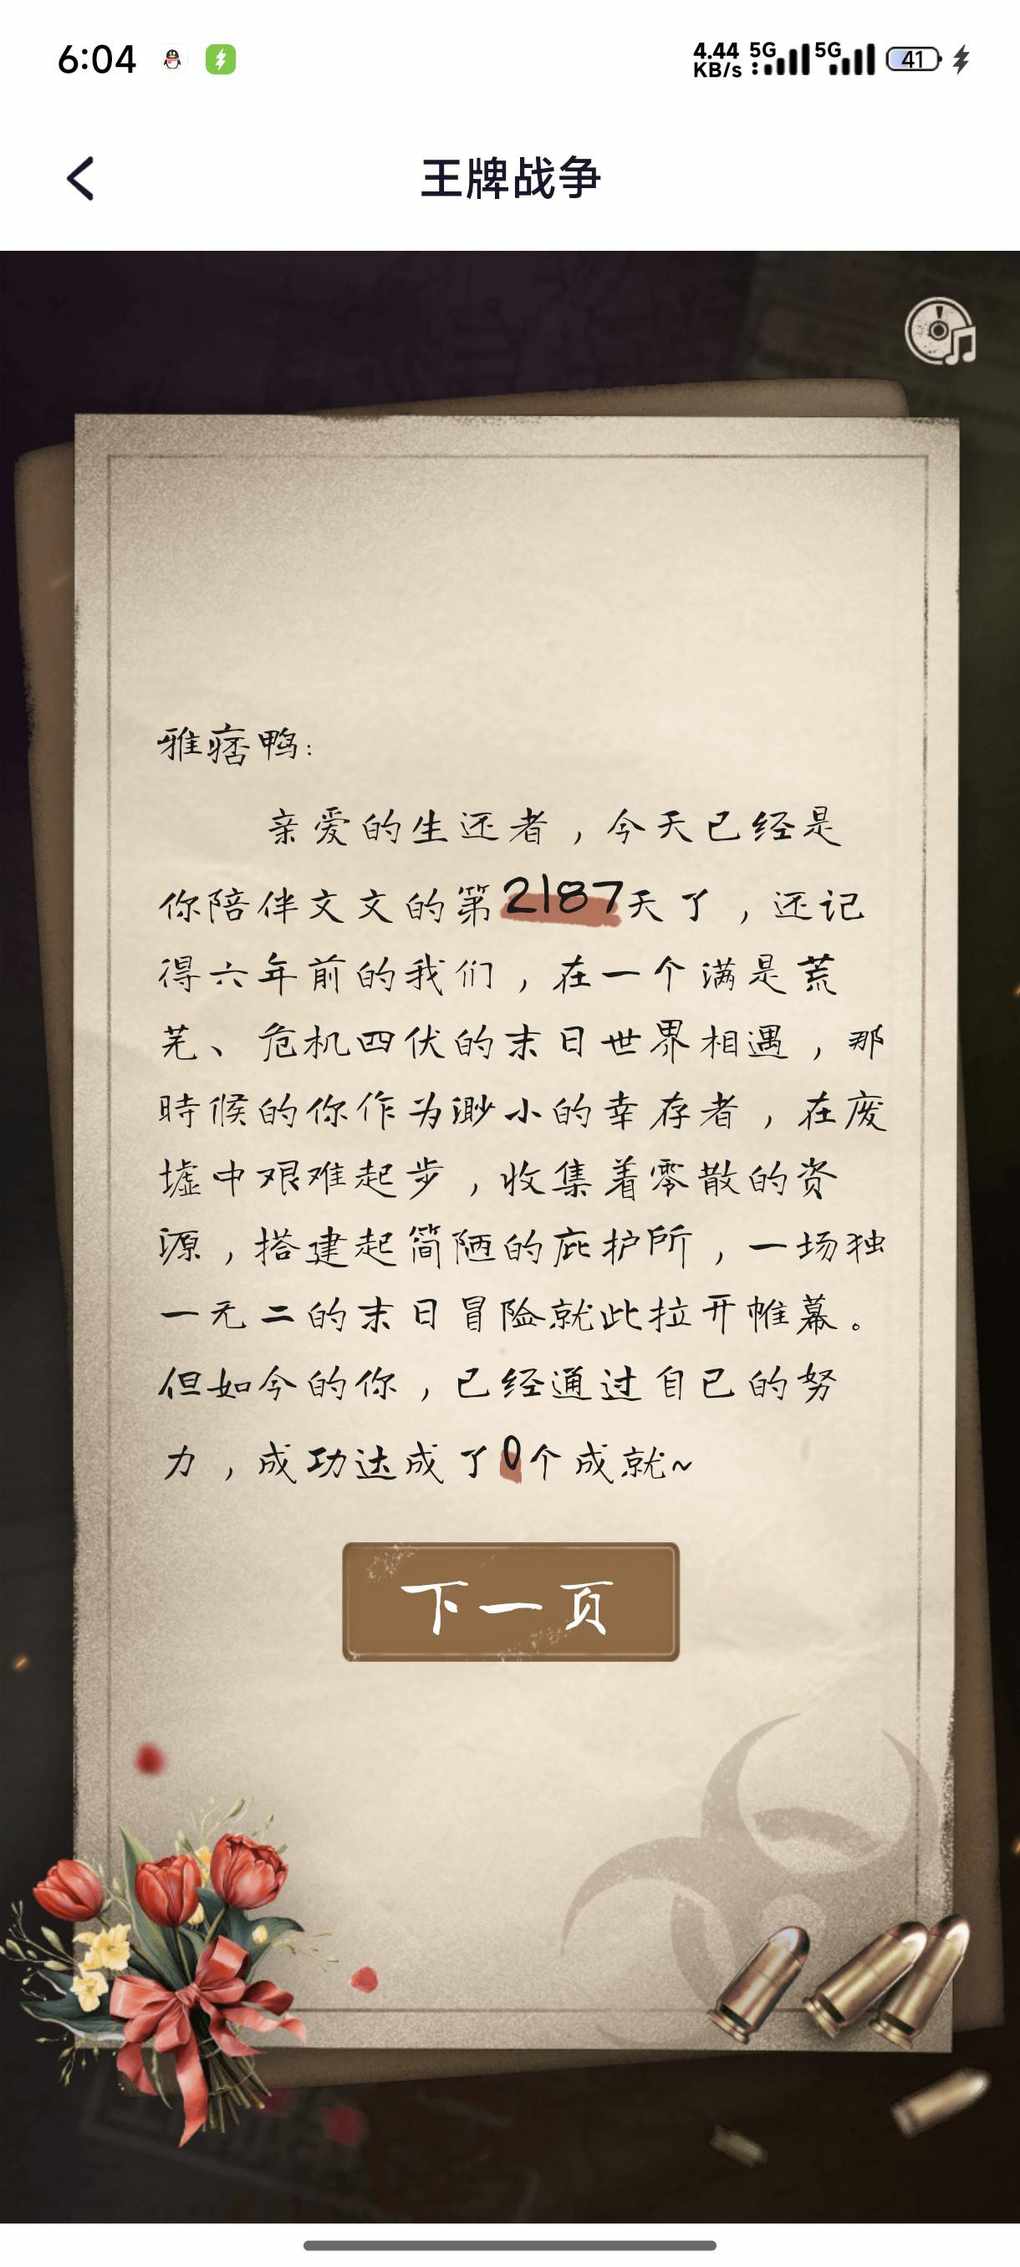 6:04
4.44 KB/s 5G 5G 41
王牌战争
雅痞鸭:
亲爱的生还者，今天已经是
你陪伴文文的第2187天了，还记
得六年前的我们，在一个满是荒
芜、危机四伏的末日世界相遇，那
時候的你作为渺小的幸存者，在废
墟中艰难起步，收集着零散的资
源，搭建起简陋的庇护所，一场独
一无二的末日冒险就此拉开帷幕。
但如今的你，已经通过自己的努
力，成功达成了0个成就~
下一页